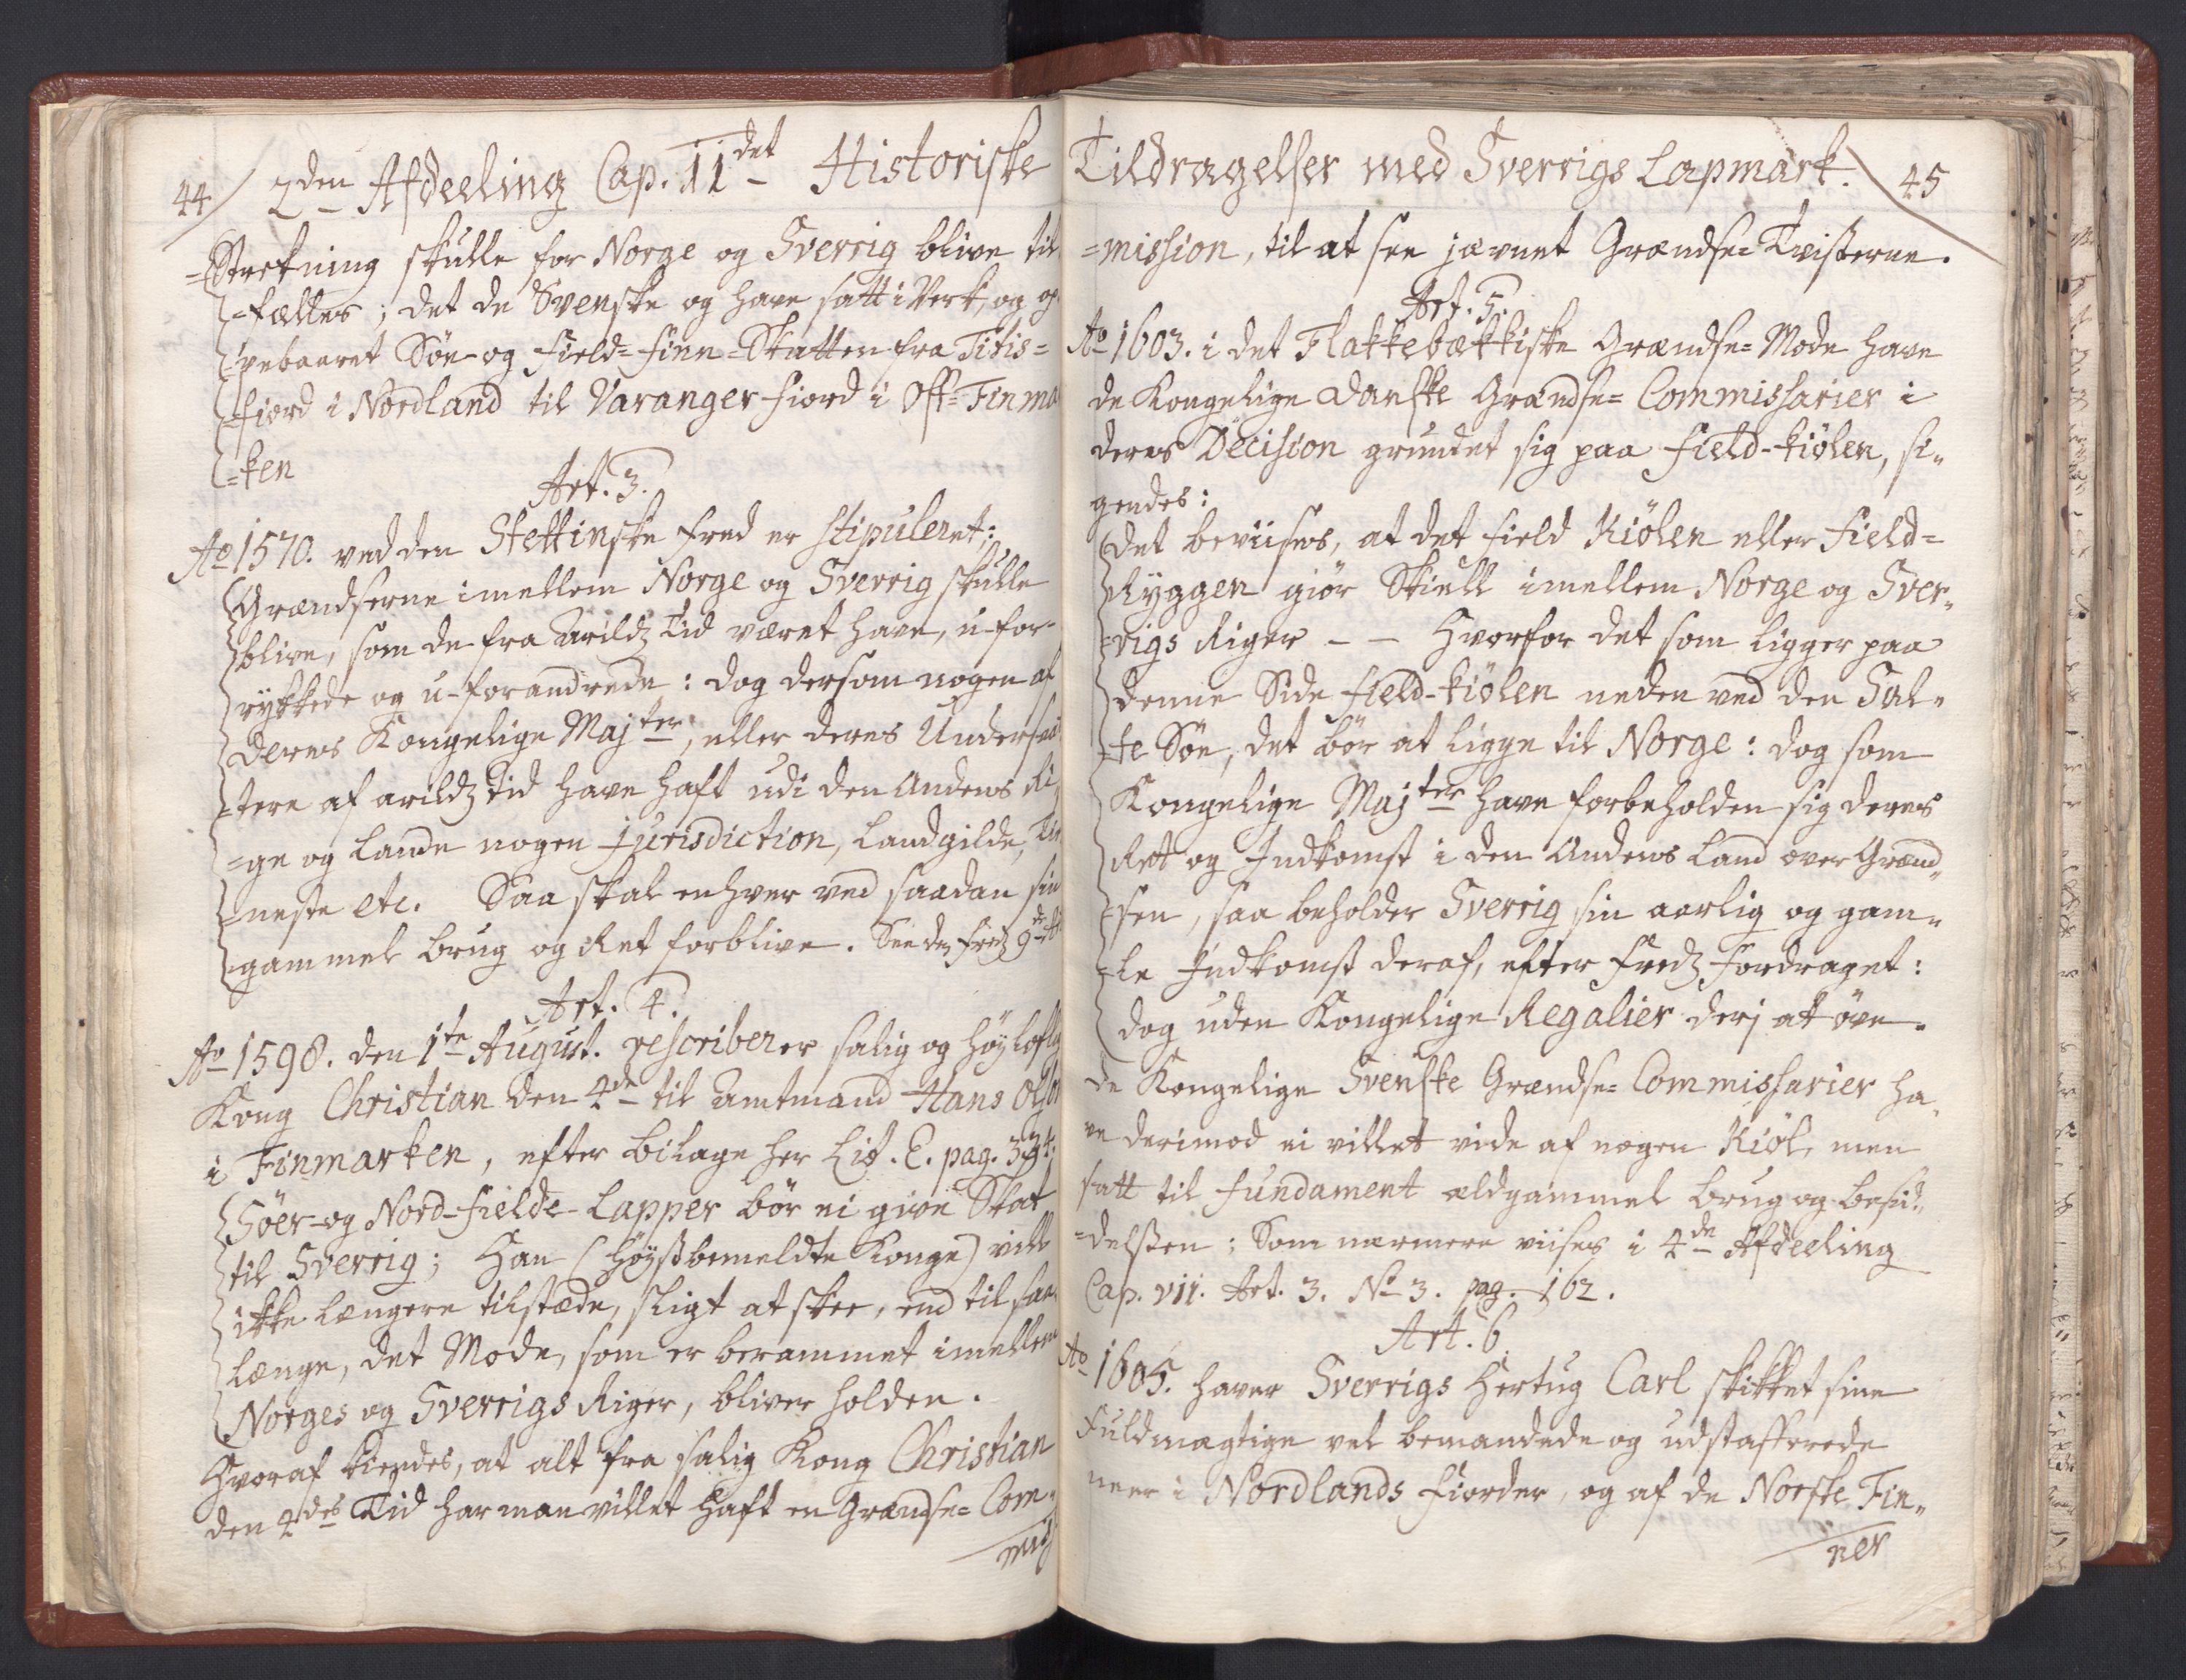 44 / 2den Afdeeling Cap. 11det Historiske
=Strekning skulle for Norge og Sverrig blive til
=fælles; det de Svenske og have satt i Verk, og op
=pebaaret Søe- og Field=Finn=Skatten fra Titis=
=fiord i Nordland til Varanger-fiord i Ost=Finmar
=ken
Art. 3.
Ao 1570. ved den Stettinske Fred er stipuleret;
Grændserne imellem Norge og Sverrig skulle
blive, som de fra Arildz Tid været have, u-for-
rykkede og u-forandrede: dog dersom nogen af
deres Kongelige Majter, eller deres Undersaa
=tere af arildz Tid have haft udi den Andens Ri
=ge og Lande nogen jurisdiction, Landgilde, Tie
=neste etc. Saa skal enhver ved saadan sin
=gammel Brug og Ret forblive. See dez fredz 9de Art
Art. 4.
Ao 1598. den 1te August. rescriberer salig og Høylofl
Kong Christian den 4de til Amtmand Hans Olsø
i Finmarken, efter Bilage her Lit. E. pag. 394:
Söer- og Nord-Fielde-Lapper bör ei give Skat
til Sverrig; Han (höystbemeldte Konge) vill
ikke længere tilstæde, sligt at skee, end til saa
længe, det Mode, som er berammet imellem
Norges og Sverrigs Riger, bliver holden.
Hvoraf kiendes, at alt fra salig Kong Christian
den 4des Tid har man villet haft en Grændse=Com-
mis
Tildragelser med Sverrigs Lapmark. \ 45
=mission, til at see jævnet Grændse=Tvisterne.
Art. 5.
Ao 1603. i det Flakkebækkiske Grændse=Mode have
de Kongelige Danske Grændse=Commissarier i
deres Decision grundet sig paa Field-kiölen, si-
gendes:
Det beviises, at det Field Kiölen eller Field=
Ryggen giör Skiell imellem Norge og Sver-
=rigs Riger - - Hvorfor det som ligger paa
denne Side Field-kiölen neden ved den Sal-
=te Søe, det bör at ligge til Norge: dog som
Kongelige Majter have forbeholden sig deres
Ret og Indkomst i den Andens Land over Grænd-
=sen, saa beholder Sverrig sin aarlig og gam-
=le Indkomst deraf, efter Fredz Fordraget:
dog uden Kongelige Regalier derj at öve.
de Kongelige Svenske Grændse=Commissarier ha-
ve derimod ei villet vide af nogen Kiöl, men
satt til fundament ældgammel Brug og Besid-
=delsen; Som nærmere viises i 4de Afdeeling
Cap. VII. Art. 3. No 3. pag. 162.
Art. 6.
Ao 1605. haver Sverrigs Hertug Carl skikket sine
Fuldmægtige vel bemandede og udstafferede
neer i Nordlands Fiorder, og af de Norske Fin-
ner